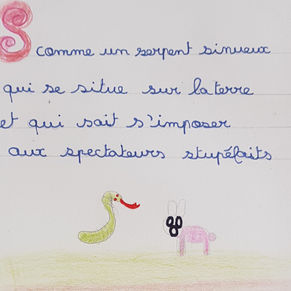 S comme un serpent sinueux
qui se situe sur la terre
et qui sait s'imposer
aux spectateurs stupéfaits